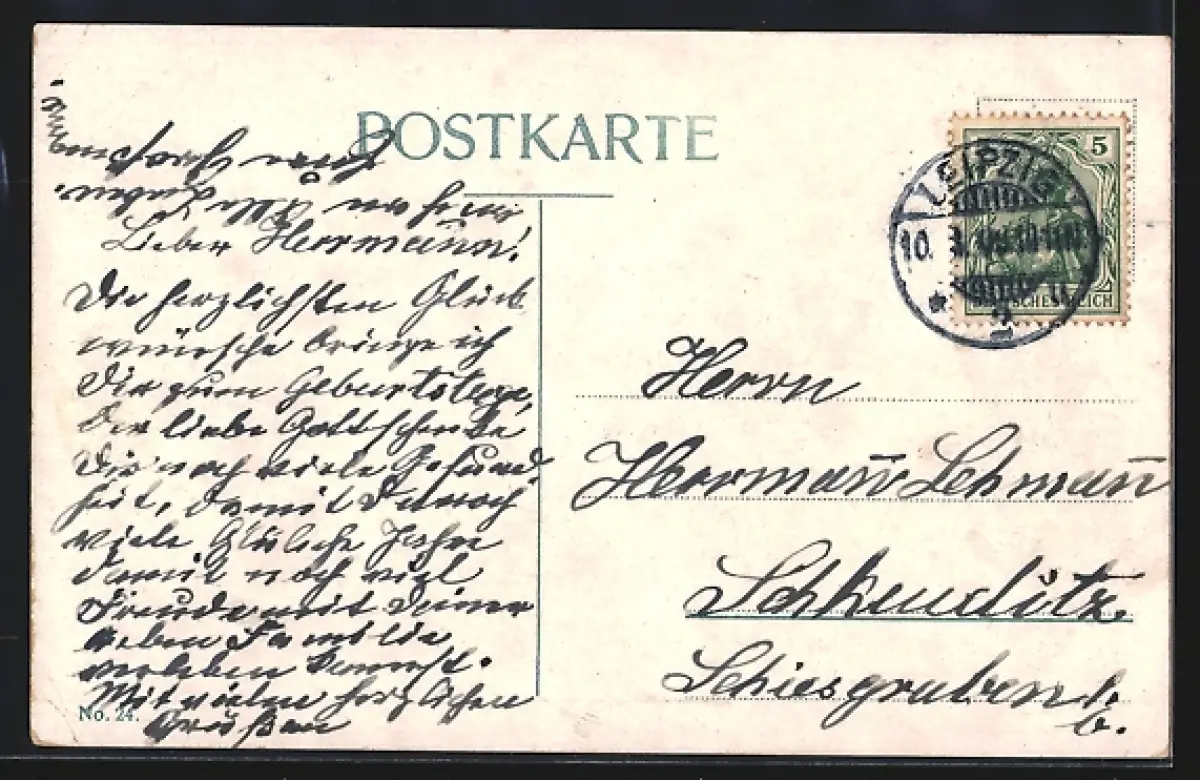 POSTKARTE
Lieber Herrmann!
Die herzlichsten Glück
wünsche bringe ich
Dir zum Geburtstage,
Der liebe Gott schenke
Dir noch viele Gesund
heit, damit Du noch
viele Glükliche Jahre
damit noch viel
Freude mit Deiner
lieben Familie
verleben kannst.
Mit vielen herzlichen
Grüßen
No. 24.
5
LEIPZIG
10.
2
DEUTSCHES REICH
Herrn
Herrman̄ Lehman̄
Schkeuditz
Schiesgraben
6.